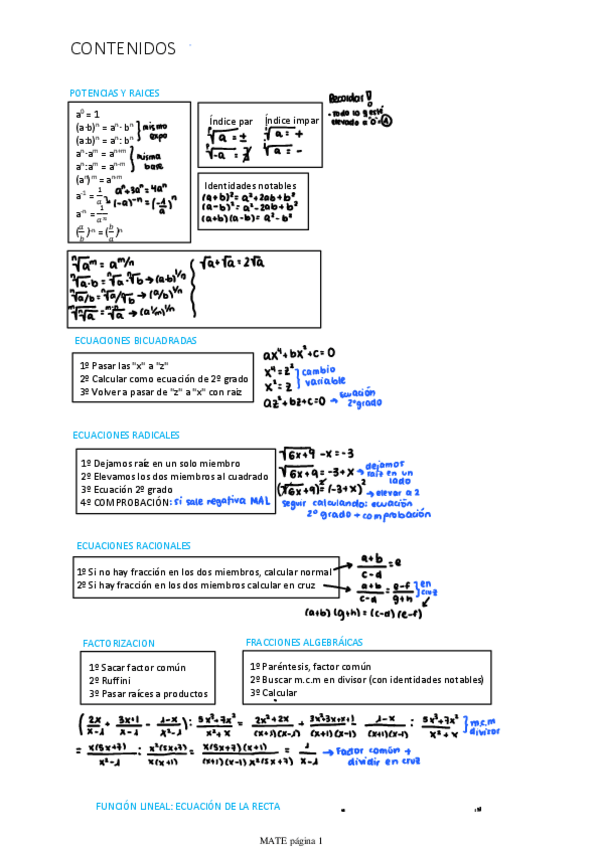 CONTENIDOS
POTENCIAS Y RAICES
a⁰ = 1
(a·b)ⁿ = aⁿ · bⁿ
(a:b)ⁿ = aⁿ : bⁿ
mismo expo
aⁿ·aᵐ = aⁿ⁺ᵐ
aⁿ:aᵐ = aⁿ⁻ᵐ
misma base
(aⁿ)ᵐ = aⁿ·ᵐ
a⁻¹ = 1/a
aⁿ+3aⁿ = 4aⁿ
(-a)⁻ⁿ = (-1/a)ⁿ
a⁻ⁿ = 1/aⁿ
(a/b)⁻ⁿ = (b/a)ⁿ
Índice par Índice impar
Recordar!
- Todo lo q esté
elevado a 0 es 1
Identidades notables
(a+b)² = a²+2ab+b²
(a-b)² = a²-2ab+b²
(a+b)(a-b) = a²-b²
ⁿ√aᵐ = a^m/n
√a+√a = 2√a
ⁿ√a·b = ⁿ√a · ⁿ√b → (a·b)^1/n
ⁿ√a/b = ⁿ√a/ⁿ√b → (a/b)^1/n
ECUACIONES BICUADRADAS
1º Pasar las "x" a "z"
2º Calcular como ecuación de 2º grado
3º Volver a pasar de "z" a "x" con raiz
ax⁴+bx²+c=0
x⁴=z²
x²=z
cambio variable
az²+bz+c=0 → ecuación 2º grado
ECUACIONES RADICALES
1º Dejamos raíz en un solo miembro
2º Elevamos los dos miembros al cuadrado
3º Ecuación 2º grado
4º COMPROBACIÓN: si sale negativa MAL
√6x+9 -x=-3
√6x+9 = -3+x → dejamos raíz en un lado
(√6x+9)²=(-3+x)² → elevar a 2
seguir calculando: ecuación
2º grado + comprobación
ECUACIONES RACIONALES
1º Si no hay fracción en los dos miembros, calcular normal
2º Si hay fracción en los dos miembros calcular en cruz
a+b/c-d = e
a+b/c-d = e-f/g+h en cruz
(a+b)(g+h)=(c-d)(e-f)
FACTORIZACION
1º Sacar factor común
2º Ruffini
3º Pasar raíces a productos
FRACCIONES ALGEBRÁICAS
1º Paréntesis, factor común
2º Buscar m.c.m en divisor (con identidades notables)
3º Calcular
(2x/x-1 + 3x+1/x-1 - 1-x/x²-1) : 5x³+7x²/x²+x = 2x²+2x/(x+1)(x-1) + 3x²+3x+x+1/(x+1)(x-1) - 1-x/(x+1)(x-1) : 5x³+7x²/x²+x m.c.m divisor
= x(5x+7)/x²-1 : x²(5x+7)/x(x+1) = x(5x+7)x(x+1)/(x+1)(x-1)x²(5x+7) = 1/x-1 → Factor común + dividir en cruz
FUNCIÓN LINEAL: ECUACIÓN DE LA RECTA
MATE página 1